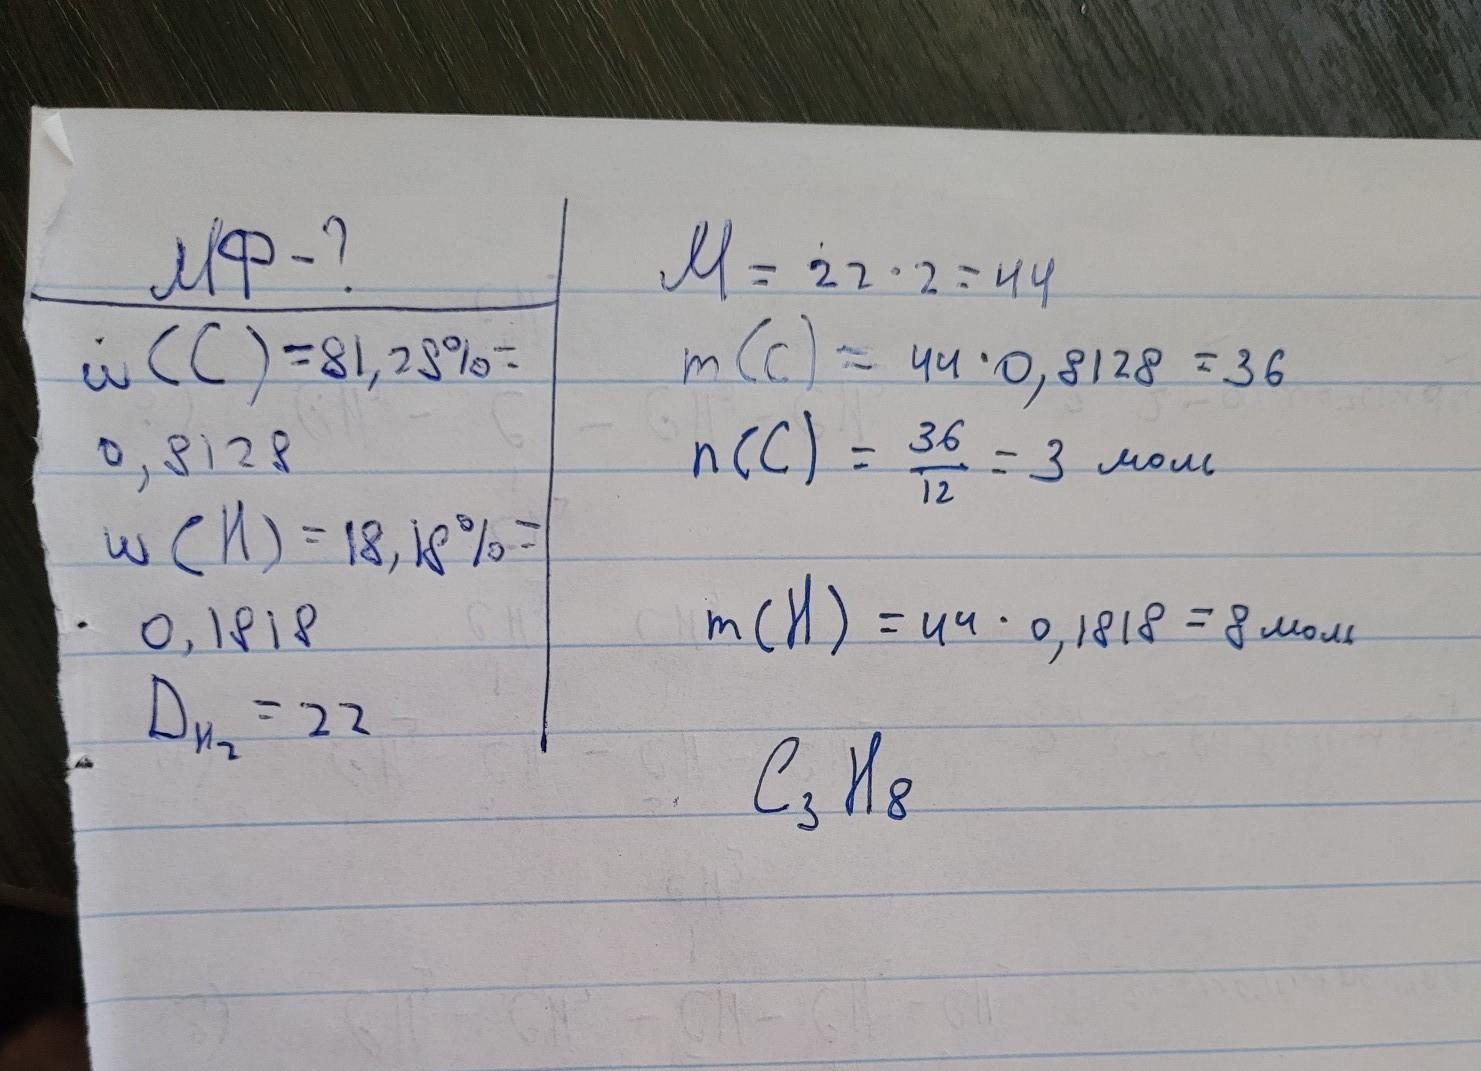 МФ - ?
w(C) = 81,28% =
0,8128
w(H) = 18,18% =
0,1818
D H₂ = 22
M = 22 · 2 = 44
m(C) = 44 · 0,8128 = 36
n(C) = 36/12 = 3 моль
m(H) = 44 · 0,1818 = 8 моль
C₃H₈